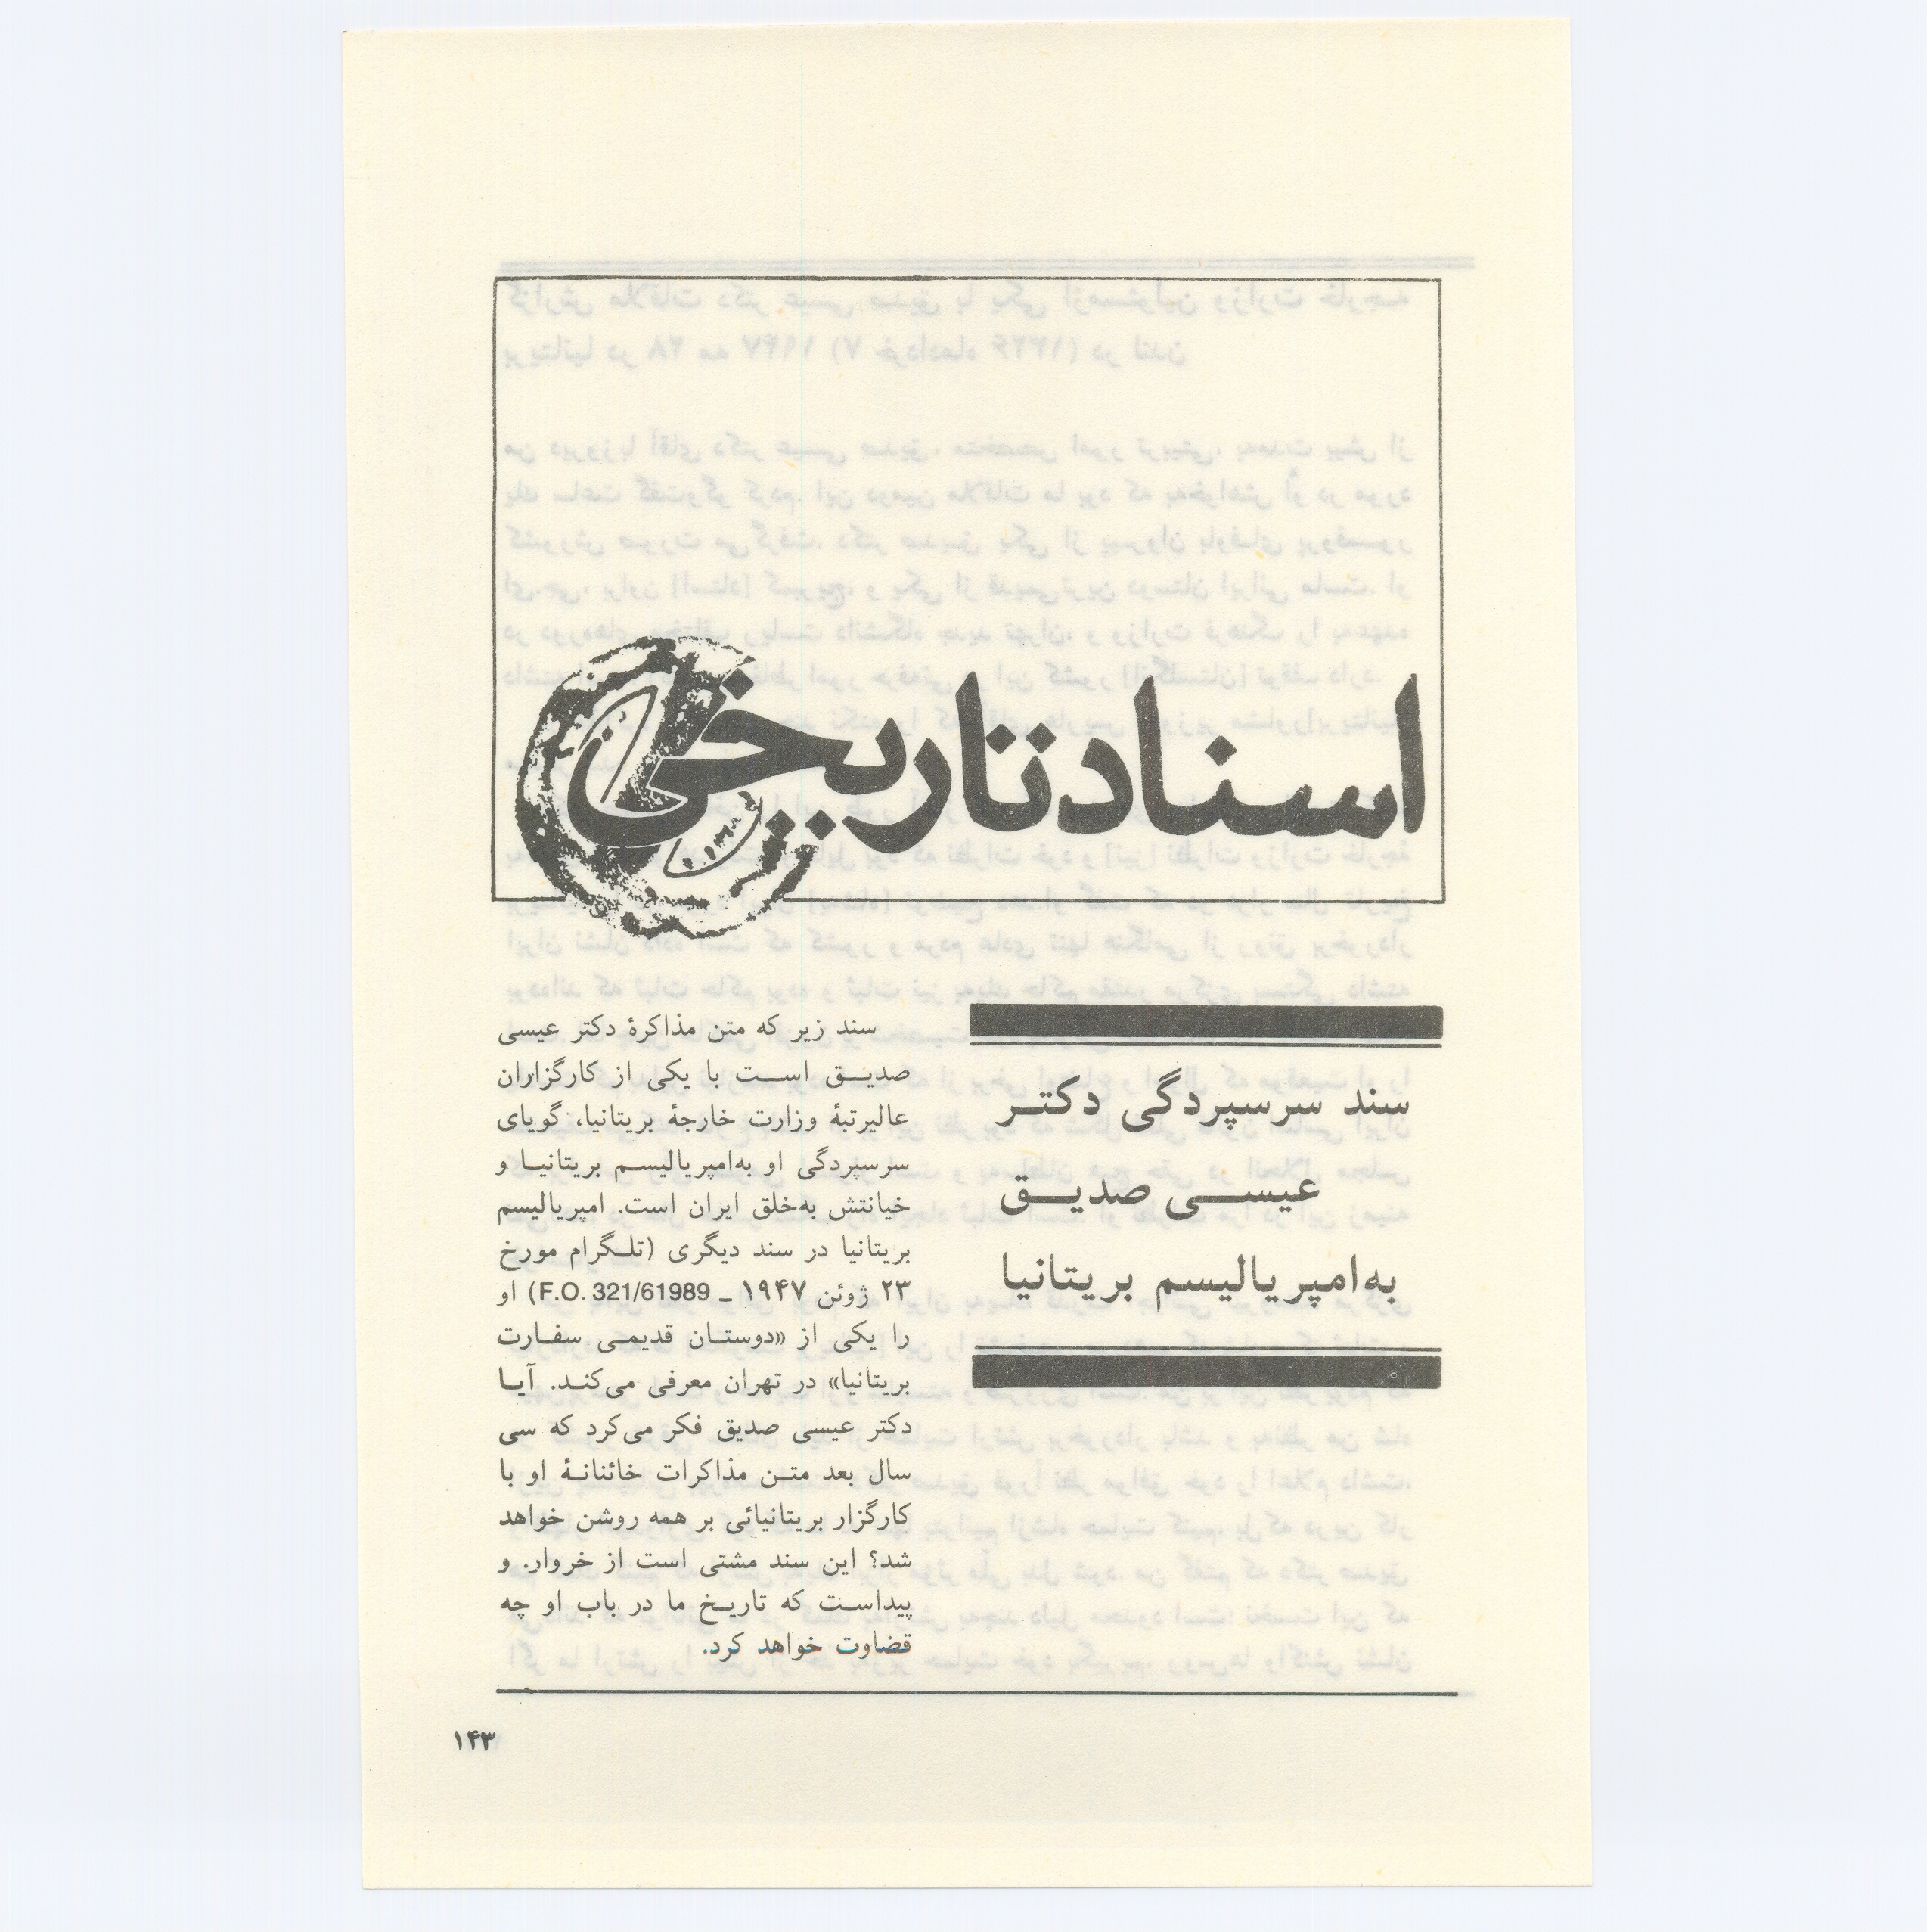 اسناد تاریخی
سند سرسپردگی دکتر
عیسی صدیق
به‌امپریالیسم بریتانیا
سند زیر که متن مذاکرهٔ دکتر عیسی
صدیق است با یکی از کارگزاران
عالیرتبهٔ وزارت خارجهٔ بریتانیا، گویای
سرسپردگی او به‌امپریالیسم بریتانیا و
خیانتش به‌خلق ایران است. امپریالیسم
بریتانیا در سند دیگری (تلگرام مورخ
۲۳ ژوئن ۱۹۴۷ ـ F.O. 321/61989) او
را یکی از «دوستان قدیمی سفارت
بریتانیا» در تهران معرفی می‌کند. آیا
دکتر عیسی صدیق فکر می‌کرد که سی
سال بعد متن مذاکرات خائنانهٔ او با
کارگزار بریتانیائی بر همه روشن خواهد
شد؟ این سند مشتی است از خروار. و
پیداست که تاریخ ما در باب او چه
قضاوت خواهد کرد.
۱۴۳